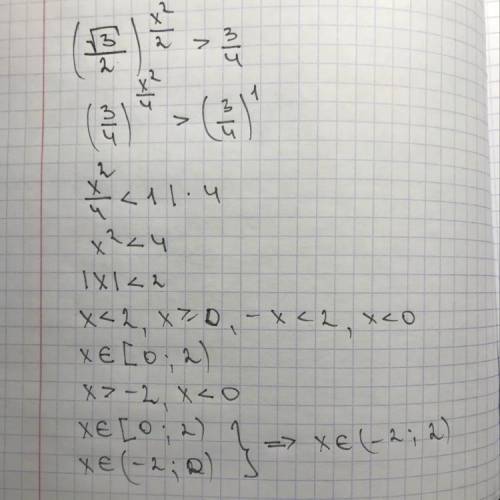 (√3/2)^(x²/2) > 3/4
(3/4)^(x²/4) > (3/4)^1
x²/4 < 1 | · 4
x² < 4
|x| < 2
x < 2, x ≥ 0, -x < 2, x < 0
x ∈ [0; 2)
x > -2, x < 0
x ∈ [0; 2) } ⇒ x ∈ (-2; 2)
x ∈ (-2; 0)